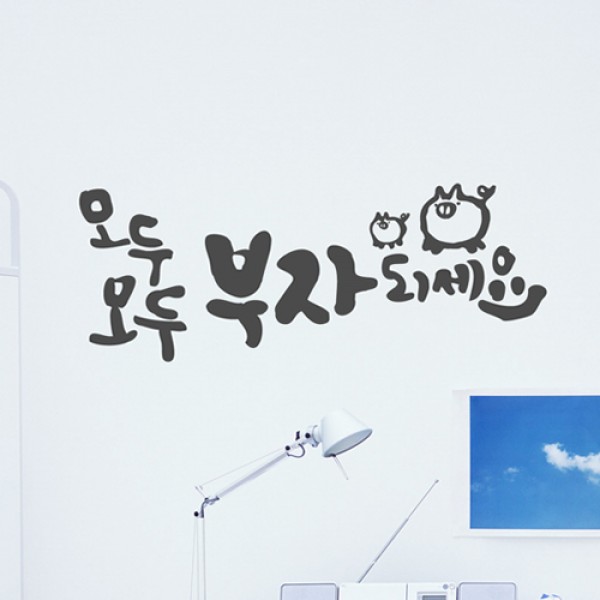 모두
모두 부자 되세요